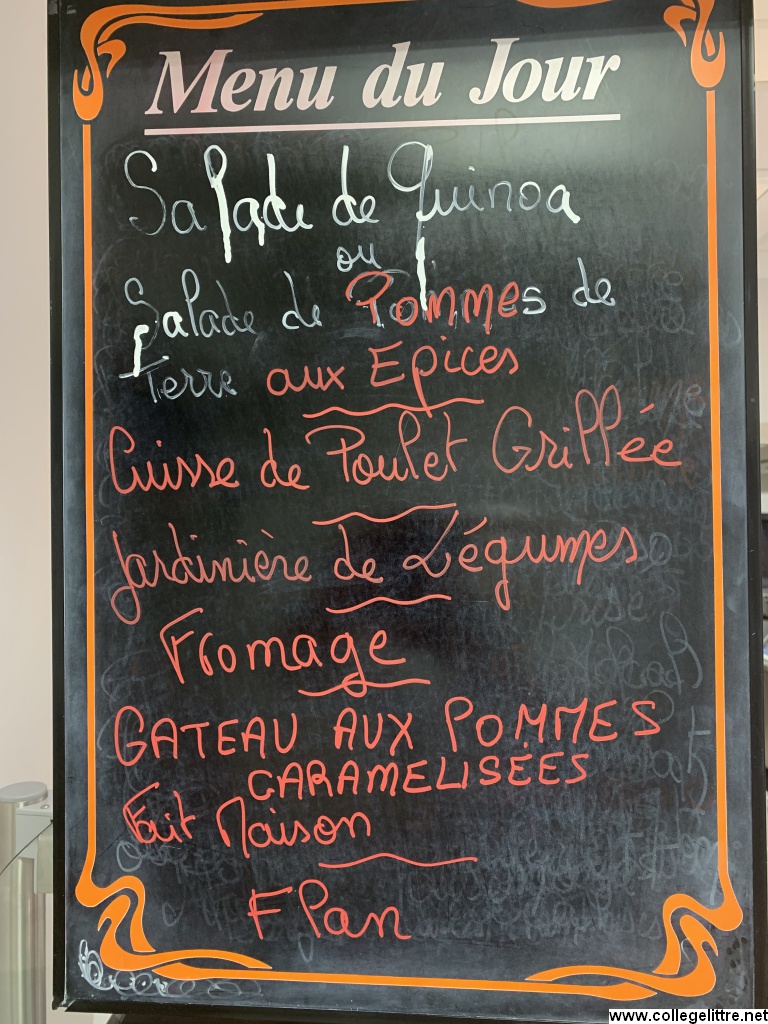 Menu du Jour
Salade de Quinoa
ou
Salade de Pommes de
Terre aux Epices
Cuisse de Poulet Grillée
Jardinière de Légumes
Fromage
GATEAU AUX POMMES
CARAMELISÉES
Fait Maison
Flan
www.collegelittre.net